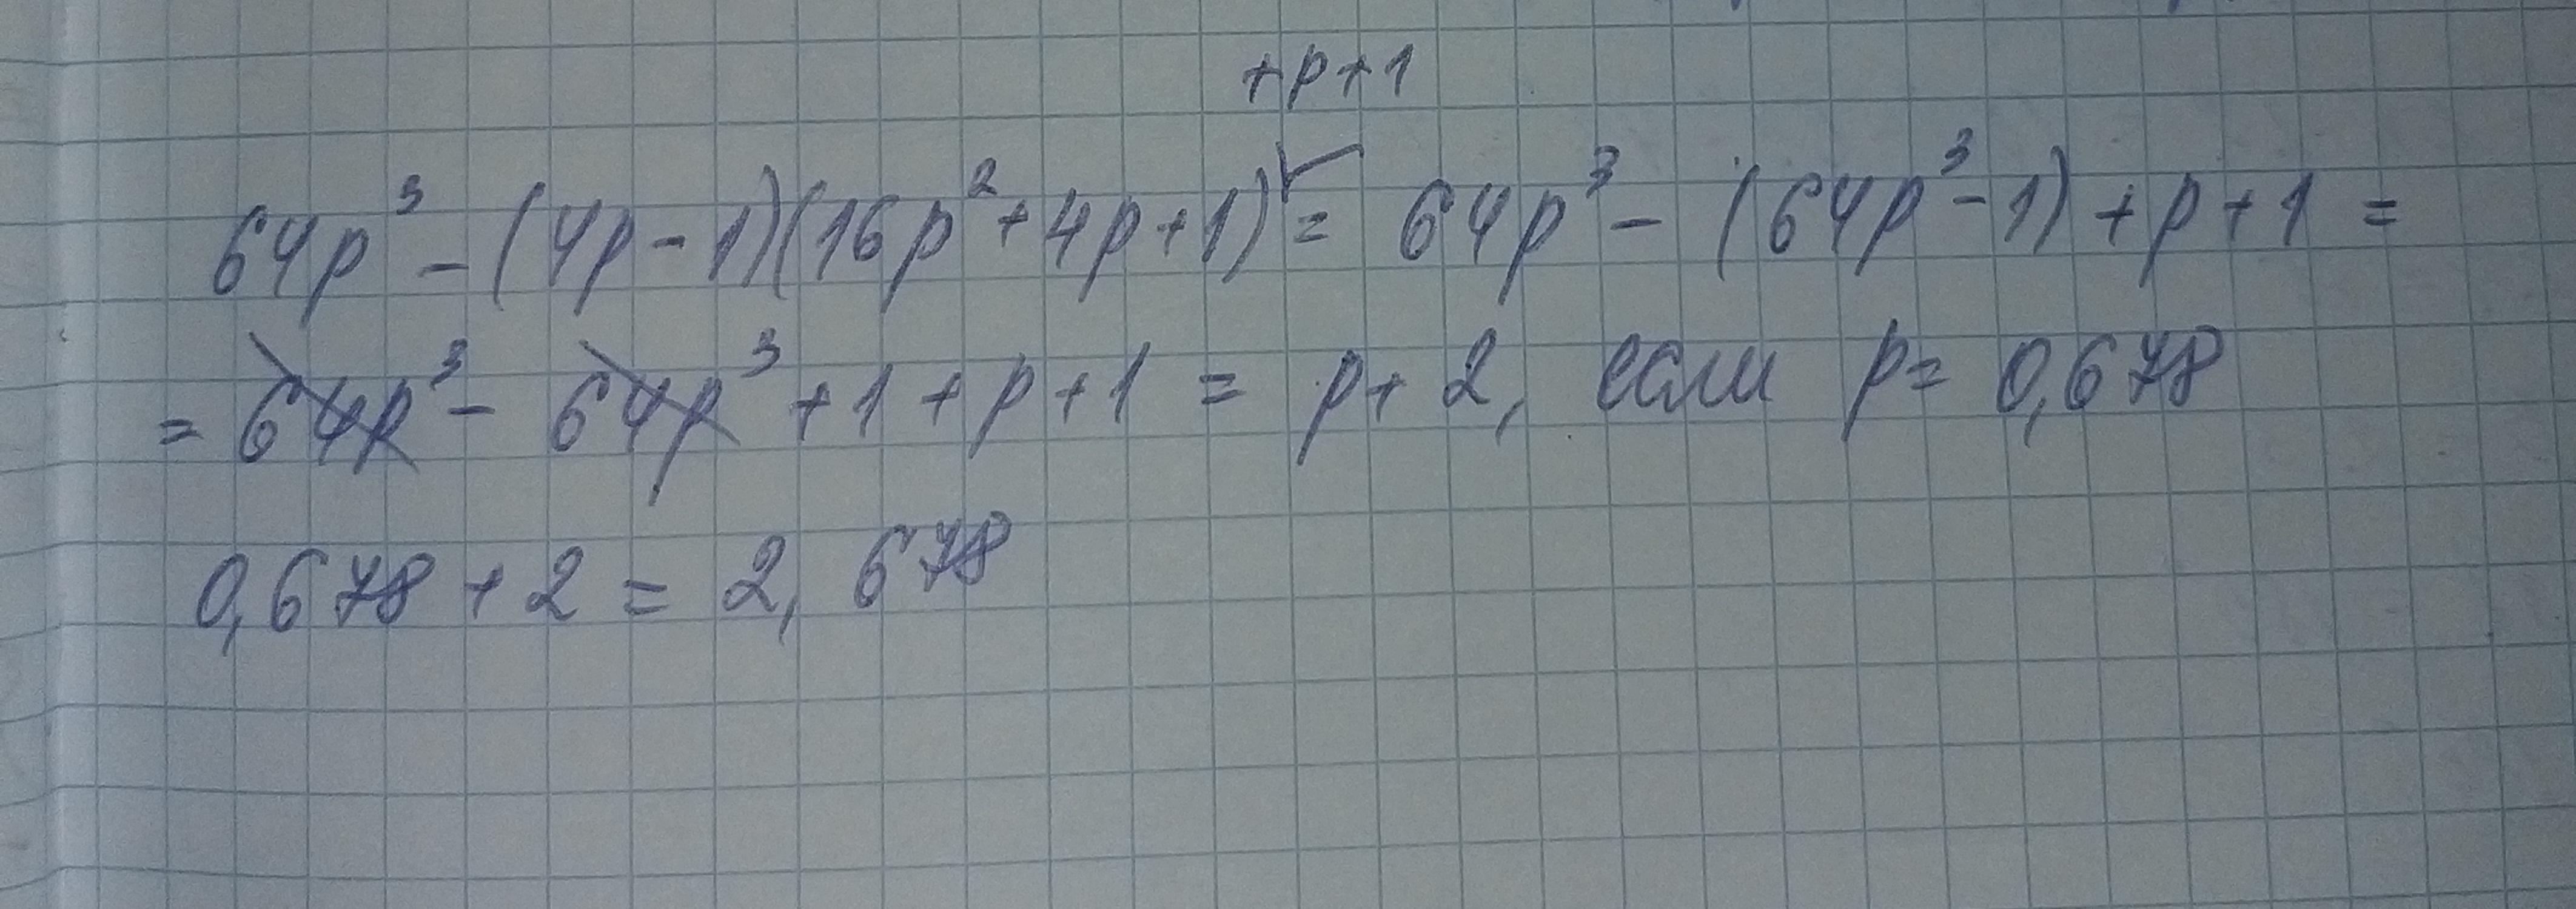 +p+1
64p³-(4p-1)(16p²+4p+1)=64p³-(64p³-1)+p+1=
=64p³-64p³+1+p+1=p+2, если p=0,678
0,678+2=2,678